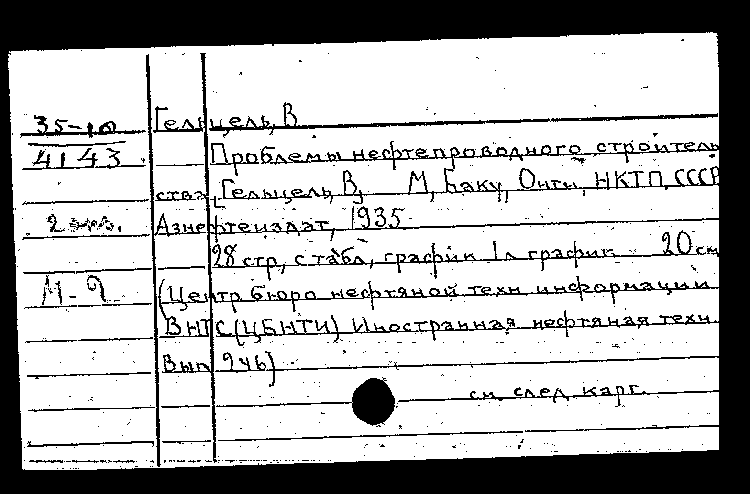 35-10 Гельцель, В
4143 Проблемы нефтепроводного строитель
ства, Гельцель, В, М, Баку, Онти, НКТП, СССР
2 экз. Азнефтеиздат, 1935
28 стр, с табл, график 1л график 20 см
М-9 (Центр бюро нефтяной техн информации
ВНТС (ЦБНТИ) Иностранная нефтяная техн.
Вып 946)
см. след. карт.